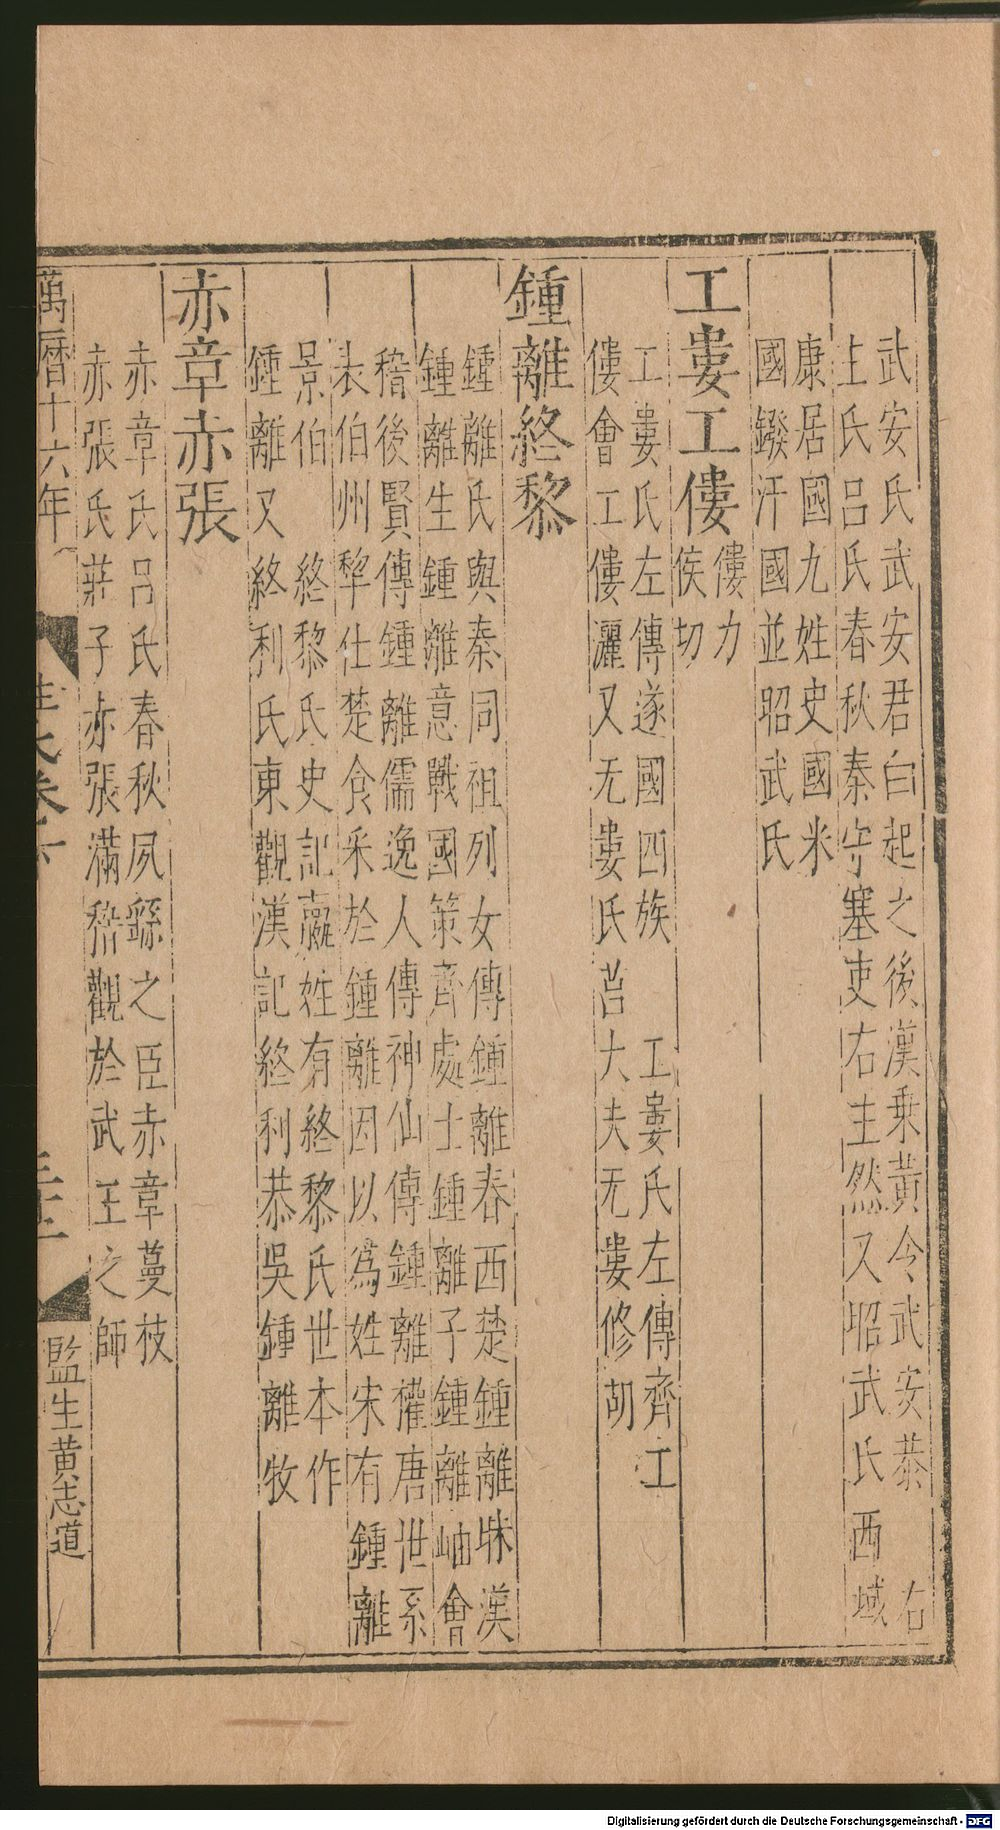 武安氏武安君白起之後漢乗黃今武安恭　右
主氏呂氏春秋秦守塞吏右主然又昭武氏西域
康居國九姓史國米
國鏺汗國並昭武氏
工婁工僂
僂力
侯切
工婁氏左傳遂國四族　工婁氏左傳齊工
僂會工僂灑又无婁氏莒大夫无婁修胡
鍾離終黎
鍾離氏與秦同祖列女傳鍾離春西楚鍾離眜漢
鍾離生鍾離意戰國策齊處士鍾離子鍾離岫會
稽後賢傳鍾離儒逸人傳神仙傳鍾離權唐世系
表伯州犂仕楚食采於鍾離因以爲姓宋有鍾離
景伯　終黎氏史記嬴姓有終黎氏世本作
鍾離又終利氏東觀漢記終利恭吳鍾離牧
赤章赤張
赤章氏呂氏春秋夙繇之臣赤章蔓枝
赤張氏莊子赤張滿稽觀於武王之師
萬曆十六年
監生黄志道
Digitalisierung gefördert durch die Deutsche Forschungsgemeinschaft - DFG